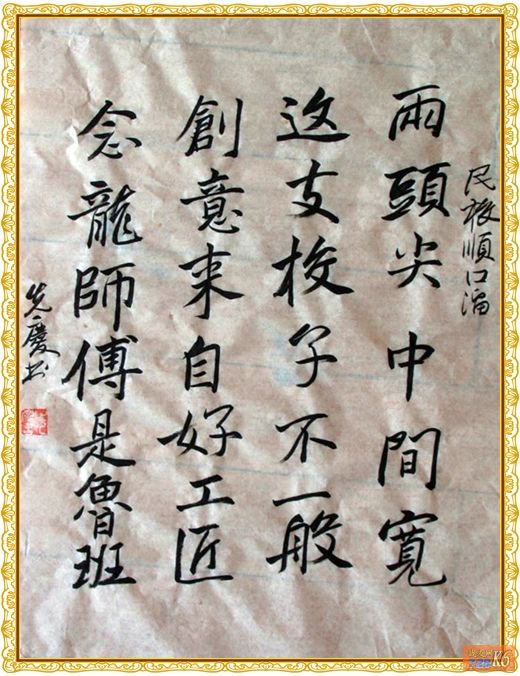 民梭順口溜
兩頭尖中間寬
这支梭子不一般
創意来自好工匠
念龍師傅是魯班
先慶书
K6